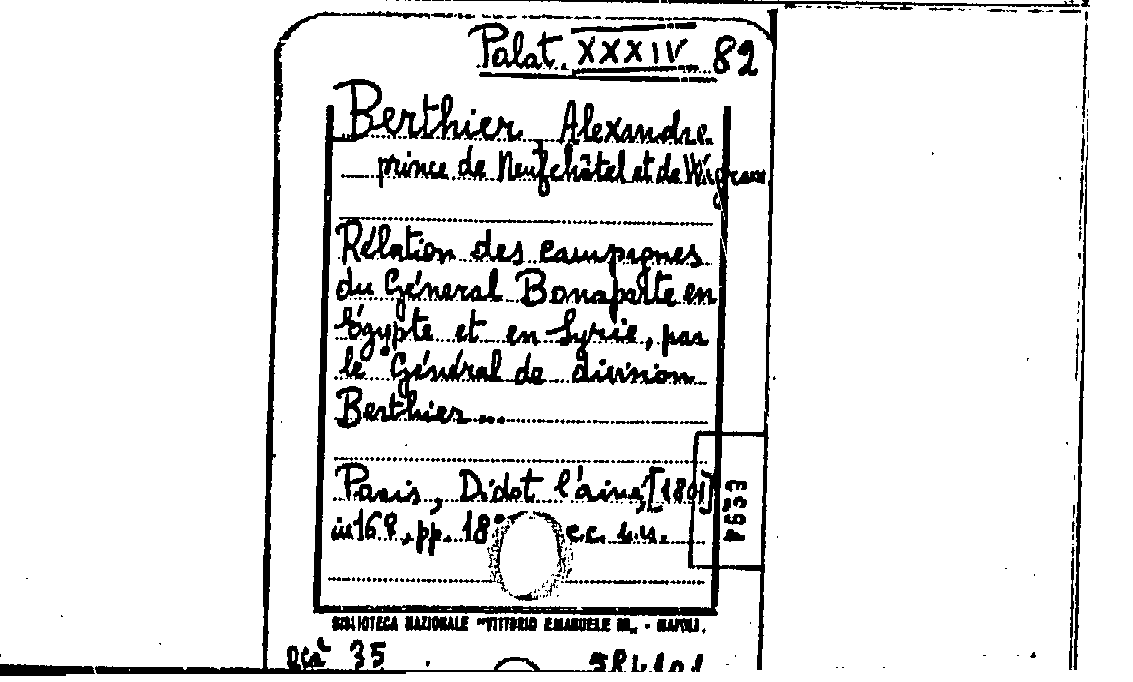 Palat. XXXIV 82
Berthier, Alexandre
prince de Neufchâtel et de Wagram
Rélation des campagnes
du Géneral Bonaparte en
Égypte et en Syrie, par
le Général de division
Berthier...
Paris, Didot l'ainé, [1801]
in 16º, pp. 18 c.c. s.n.
BIBLIOTECA NAZIONALE "VITTORIO EMANUELE III" - NAPOLI.
35